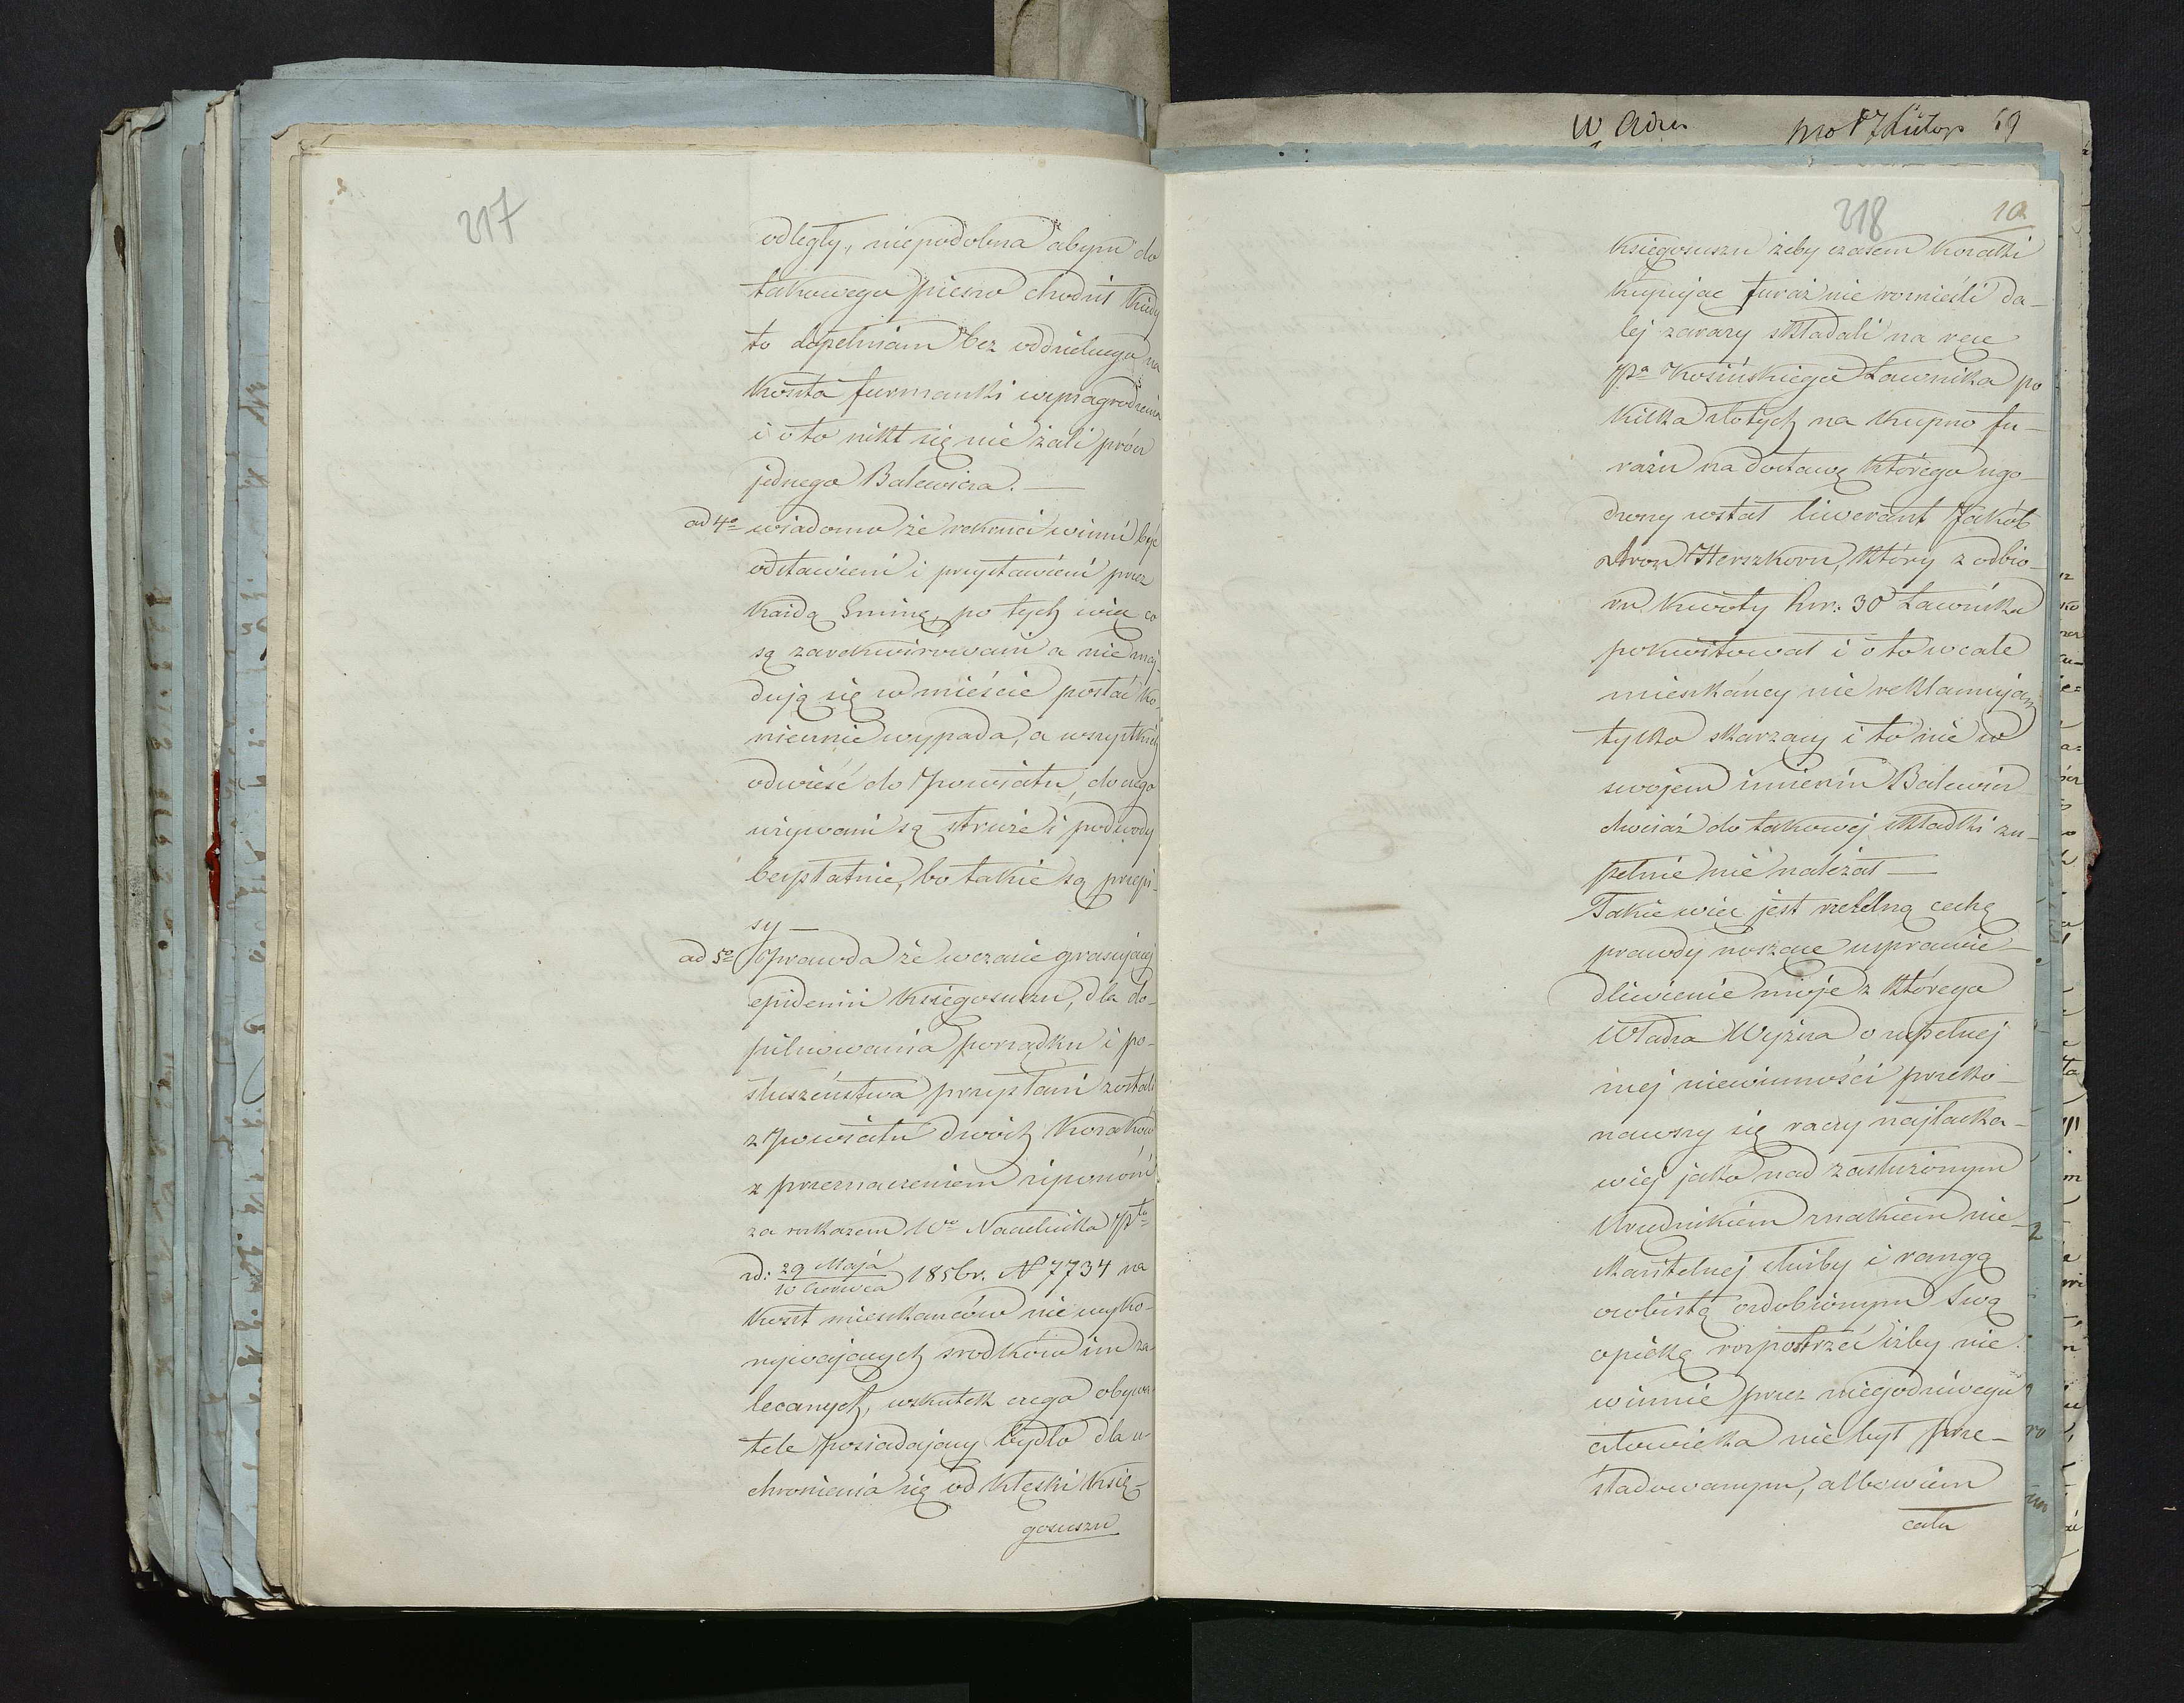 217
odległy, niepodobna abym do
takowego pieszo chodził kiedy
to dopełniam bez oddzielnego na
koszta furmanki wynagrodzenia
i o to nikt się nie żali prócz
jednego Balewicza. —
ad 4o wiadomo że rekruci winni być
odstawieni i przystawieni przez
każdą Gminę, po tych więc co
są zarekwirowani a nie znaj-
dują się w mieście posłać ko-
niecznie wypada, a wszystkich
odwieść do Powiatu, do czego
używani są stróże i podwody
bezpłatnie, bo takie są przepi-
sy —
ad 5o Prawda że w czasie grasującej
epidemii księgosuszu, dla do-
pilnowania porządku i po-
słuszeństwa przysłani zostali
z Powiatu dwóch kozaków
z przeznaczeniem
za rozkazem Wo Naczelnika Ptu
z d: 29 Maja / 10 Czerwca 1856 r. N 7734 na
koszt mieszkańców nie wyko-
nywających srodków im za-
lecanych, wskutek czego obywa-
tele posiadający bydło dla u-
chronienia się od klęski księ-
gosuszu
W
69
218
10
księgosuszu żeby czasem kozatki
kupując furaż nie roznieśli da-
lej zarazy składali na ręce
Pa Kosińskiego Ławnika po
kilka złotych na kupno fu-
rażu na dostawę którego ugo-
dzony został liwerant Jakób
Aron Herszkorn, który z odbio-
ru kwoty Rsr: 30 Ławnika
pokwitował i o to wcale
mieszkańcy nie reklamują
tylko skarzący i to nie w
swojem imieniu Balewicz
chociaż do takowej składki zu-
pełnie nie należał —
Takie więc jest rzetelną cechę
prawdy noszące usprawie-
dliwienie moje z którego
Władza Wyższa o zupełnej
mej niewinności przeko-
nawszy się raczy najłaska-
wiej jako nad zasłużonym
Urzędnikiem znakiem nie-
skazitelnej służby i rangą
osobistą ozdobionym Swą
opiekę rozpostrzeć iżby nie
winnie przez niegodziwego
człowieka nie był prze-
śladowanym, albowiem
cała